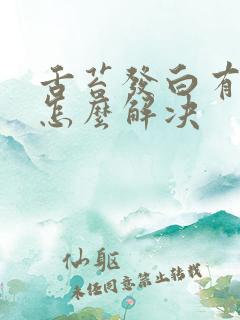 舌苔發白有
怎麼解决
仙軀
未经同意禁止转载